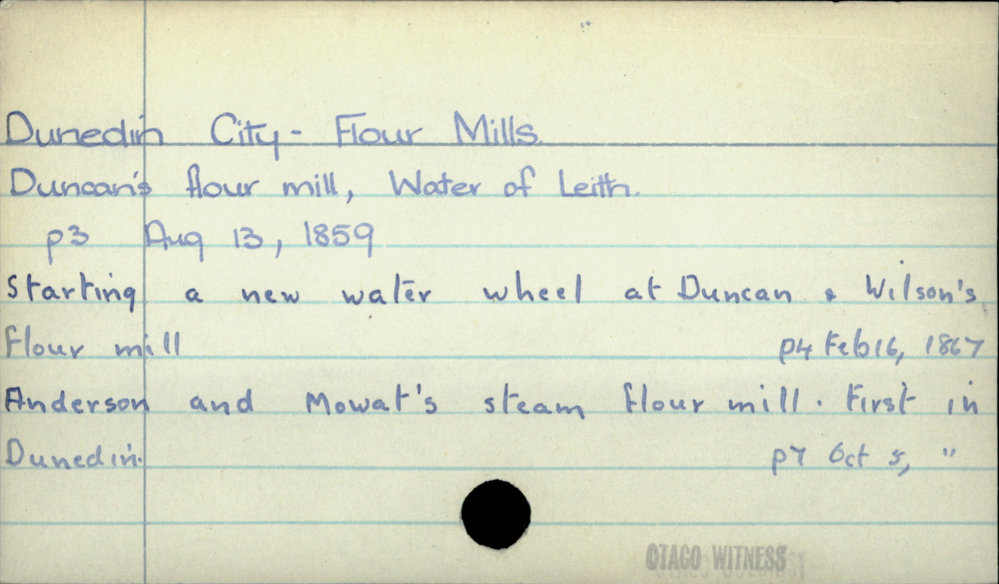 Dunedin City - Flour Mills.
Duncan's flour mill, Water of Leith.
p3 Aug 13, 1859
Starting a new water wheel at Duncan & Wilson's
flour mill p4 Feb 16, 1867
Anderson and Mowat's steam flour mill. First in
Dunedin. p7 Oct 5, "
OTAGO WITNESS